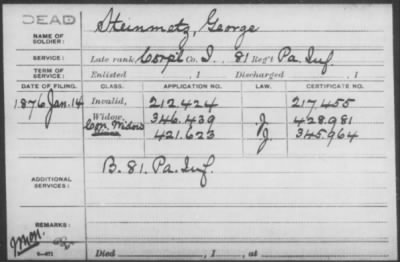 DEAD
NAME OF SOLDIER: Steinmetz, George
SERVICE: Late rank, Corp'l Co. I, 81 Reg't Pa. Inf.
TERM OF SERVICE: Enlisted , 1 Discharged , 1
DATE OF FILING. CLASS. APPLICATION NO. LAW. CERTIFICATE NO.
1876 Jan. 14 Invalid, 212.424 217.455
Widow, 346.439 J. 428.981
Con. Widow 421.623 J. 345.964
ADDITIONAL SERVICES: B. 81. Pa. Inf.
REMARKS:
Died , 1 , at